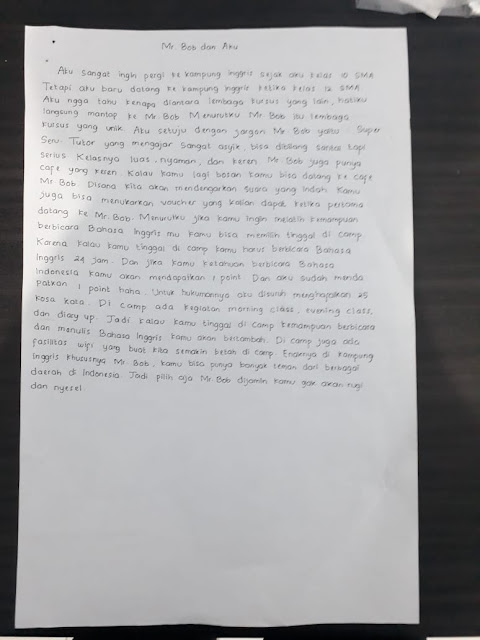 Mr. Bob dan Aku
Aku sangat ingin pergi ke kampung Inggris sejak aku kelas 10 SMA
Tetapi aku baru datang ke kampung Inggris ketika kelas 12 SMA.
Aku ngga tahu kenapa diantara lembaga kursus yang lain, hatiku
langsung mantap ke Mr. Bob. Menurutku Mr. Bob itu lembaga
kursus yang unik. Aku setuju dengan jargon Mr. Bob yaitu : Super
Seru. Tutor yang mengajar sangat asyik, bisa dibilang santai tapi
serius. Kelasnya luas, nyaman, dan keren. Mr. Bob juga punya
cafe yang keren. Kalau kamu lagi bosan kamu bisa datang ke cafe
Mr Bob. Disana kita akan mendengarkan suara yang indah. Kamu
juga bisa menukarkan voucher yang kalian dapat ketika pertama
datang ke Mr. Bob. Menurutku jika kamu ingin melatih kemampuan
berbicara Bahasa Inggris mu kamu bisa memilih tinggal di camp.
Karena kalau kamu tinggal di camp kamu harus berbicara Bahasa
Inggris 24 jam. Dan jika kamu ketahuan berbicara Bahasa
Indonesia kamu akan mendapatkan 1 point. Dan aku sudah menda
patkan 1 point haha. Untuk hukumannya aku disuruh menghapalkan 25
kosa kata. Di camp ada kegiatan morning class, evening class,
dan diary up. Jadi kalau kamu tinggal di camp kemampuan berbicara
dan menulis Bahasa Inggris kamu akan bertambah. Di camp juga ada
fasilitas wifi yang buat kita semakin betah di camp. Enaknya di kampung
Inggris khususnya Mr. Bob, kamu bisa punya banyak teman dari berbagai
daerah di Indonesia. Jadi pilih aja Mr. Bob dijamin kamu gak akan rugi
dan nyesel.